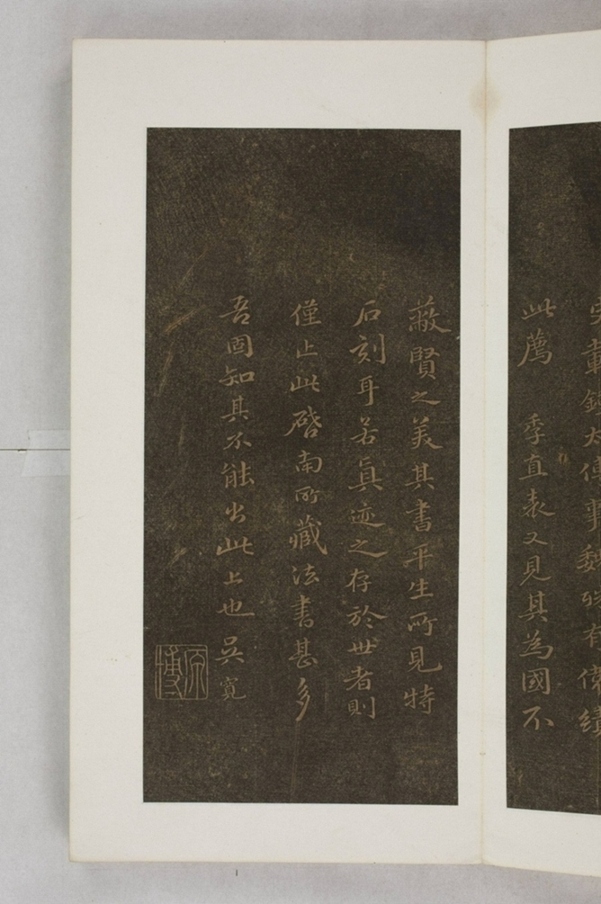 史載鍾太傅事魏殊有偉績
此薦　季直表又見其為國不
蔽賢之美其書平生所見特
石刻耳若真迹之存於世者則
僅止此啓南所藏法書甚多
吾固知其不能出此上也吳寬
原博